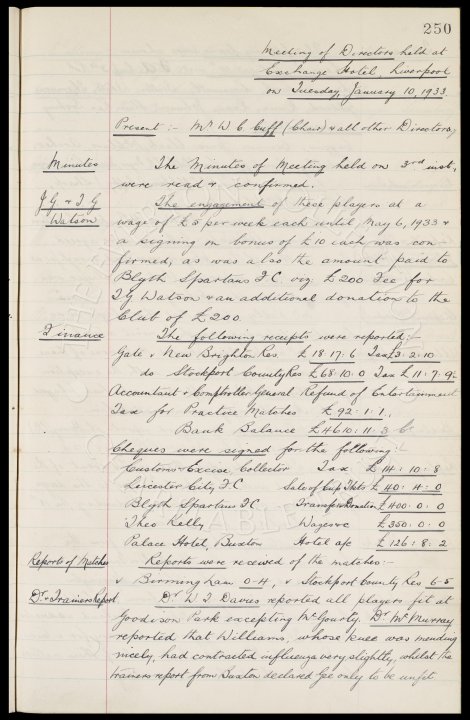 250
Meeting of Directors held at
Exchange Hotel, Liverpool
on Tuesday, January 10, 1933
Present :- Mr W. C. Cuff (Chair) & all other Directors,
Minutes
The Minutes of Meeting held on 3rd inst.,
were read & confirmed.
J G & T G
Watson
The engagement of these players at a
wage of £5 per week each until May 6, 1933 &
a signing on bonus of £10 each was con
firmed, as was also the amount paid to
Blyth Spartans F.C. viz: £200 Fee for
T G Watson & an additional donation to the
Club of £200.
Finance
The following receipts were reported:-
Gate v New Brighton Res £18.17.6 Tax £3.2.10
do Stockport County Res £68.10.0 Tax £11.7.9
Accountant & Comptroller General Refund of Entertainment
Tax for Practice Matches £92:1:1,
Bank Balance £4610:11:3 Cr
Cheques were signed for the following:-
Customs & Excise Collector Tax £14:10:8
Leicester City F C Sale of Cup Tkts £40:4:0
Blyth Spartans F C Transfer & Donation £400:0:0
Theo Kelly Wages &c £350:0:0
Palace Hotel, Buxton Hotel a/c £126:8:2
Reports of Matches
Reports were received of the matches:-
v Birmingham 0-4, v Stockport County Res 6-5
Dr & Trainers Report
Dr W J Davies reported all players fit at
Goodison Park excepting McGourty. Dr McMurray
reported that Williams, whose knee was mending
nicely, had contracted influenza very slightly, whilst the
trainers report from Buxton declared Gee only to be unfit.